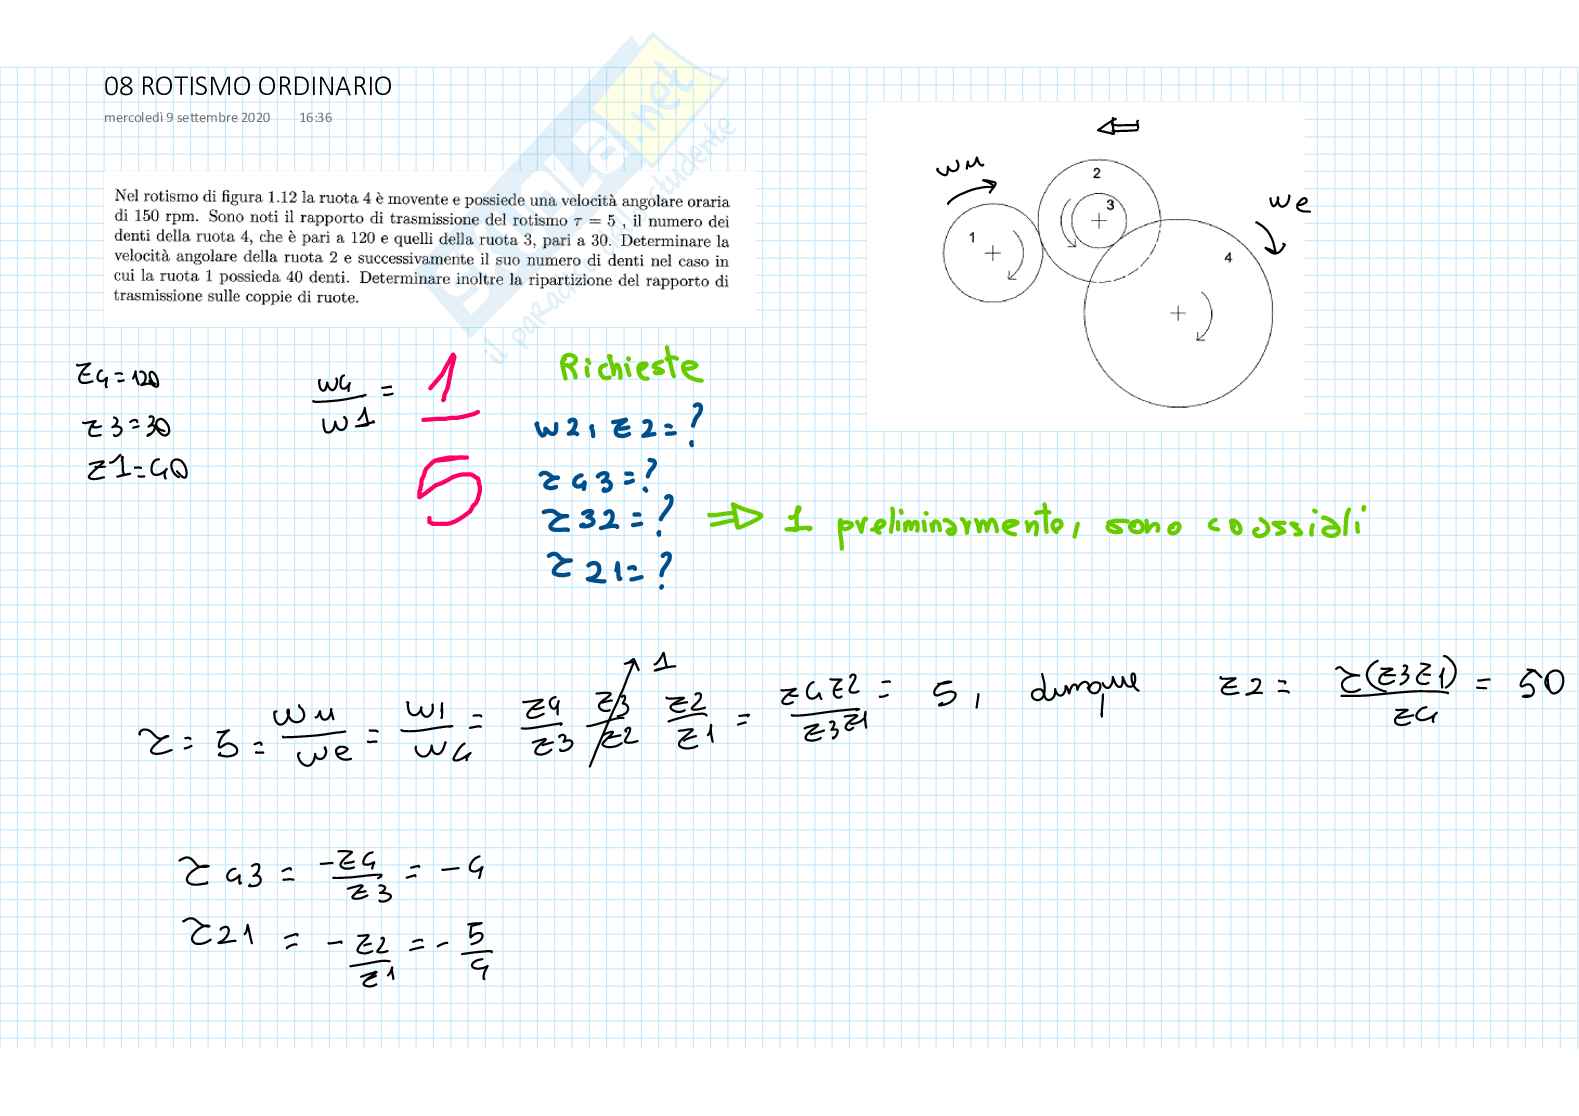 08 ROTISMO ORDINARIO
mercoledì 9 settembre 2020 16:36
Nel rotismo di figura 1.12 la ruota 4 è movente e possiede una velocità angolare oraria
di 150 rpm. Sono noti il rapporto di trasmissione del rotismo τ = 5 , il numero dei
denti della ruota 4, che è pari a 120 e quelli della ruota 3, pari a 30. Determinare la
velocità angolare della ruota 2 e successivamente il suo numero di denti nel caso in
cui la ruota 1 possieda 40 denti. Determinare inoltre la ripartizione del rapporto di
trasmissione sulle coppie di ruote.
SKUOLA.net
il paradiso dello studente
ωu
ωe
1
2
3
4
z4 = 120
z3 = 30
z1 = 40
ω4/ω1 = 1/5
Richieste
ω2, z2 = ?
τ43 = ?
τ32 = ? ⇒ 1 preliminarmente, sono coassiali
τ21 = ?
τ = 5 = ωu/ωe = ω1/ω4 = z4/z3 z3/z2 z2/z1 = z4z2/z3z1 = 5, dunque z2 = τ(z3z1)/z4 = 50
1
τ43 = -z4/z3 = -4
τ21 = -z2/z1 = -5/4